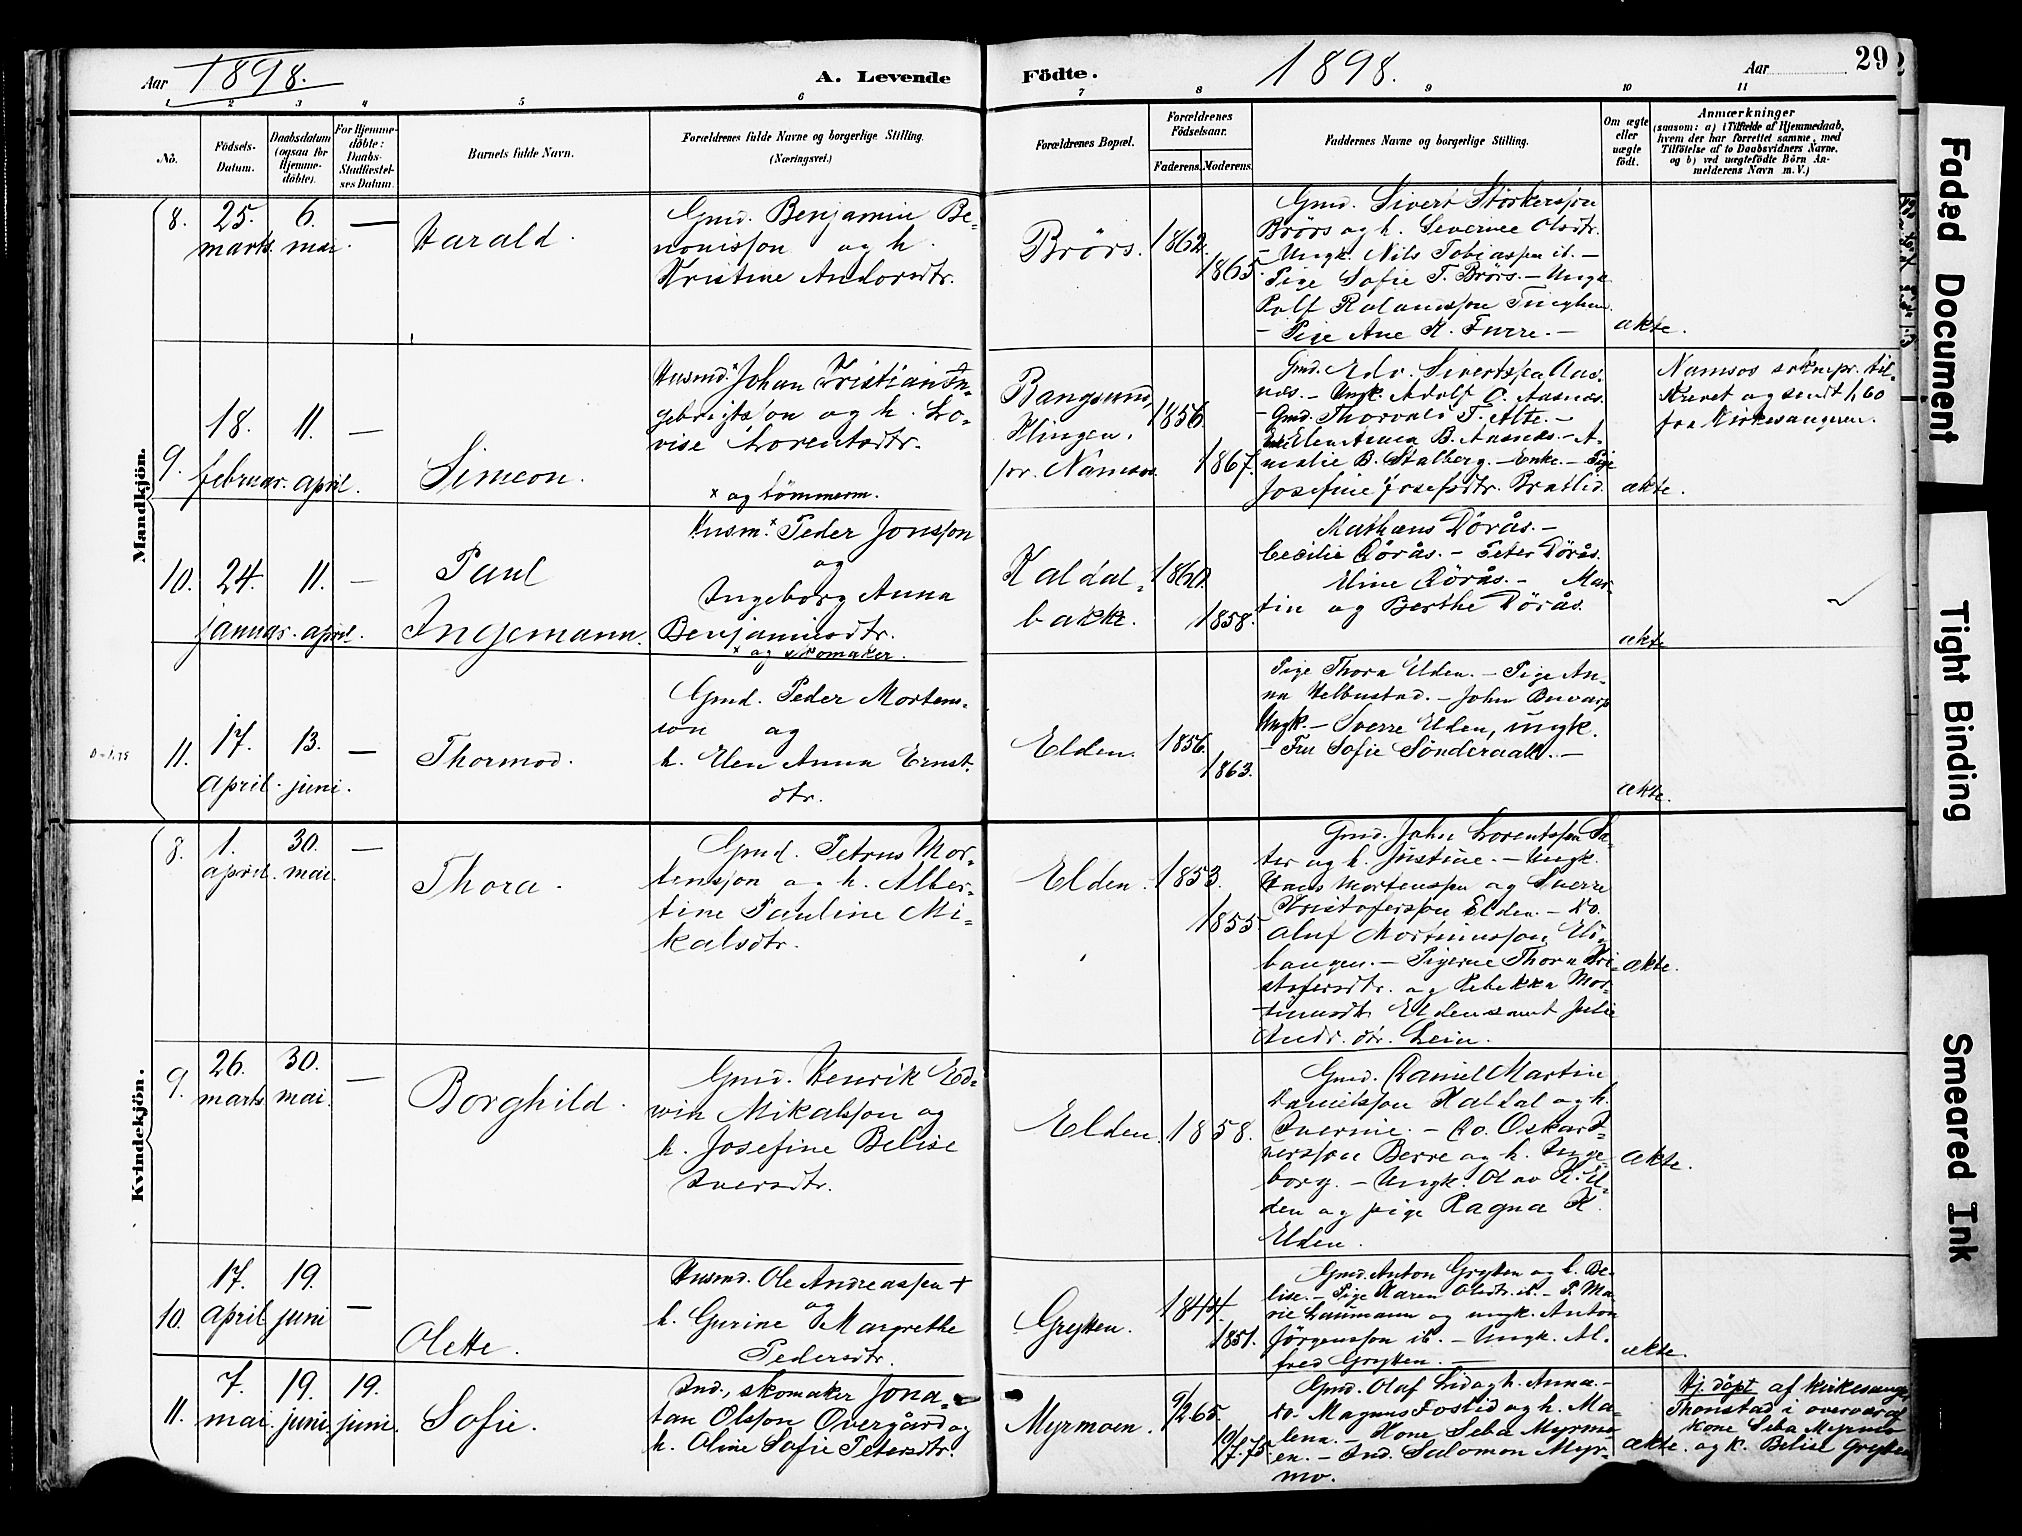 Aar 1898.
A. Levende
Födte.
1898.
Aar
29
1 2 3 4 5 6 7 8 9 10 11
No.
Födsels-
Datum.
Daabsdatum
(ogsaa for
Hjemme-
döbte).
For Hjemme-
döbte:
Daabs-
Stadfæstel-
ses Datum.
Barnets fulde Navn.
Forældrenes fulde Navne og borgerlige Stilling.
(Næringsvei.)
Forældrenes Bopæl.
Forældrenes
Födselsaar.
Faderens.
Moderens.
Faddernes Navne og borgerlige Stilling.
Om ægte
eller
uægte
födt.
Anmærkninger
(saasom: a) i Tilfælde af Hjemmedaab,
hvem der har forrettet samme, med
Tilföielse af to Daabsvidners Navne,
og b) ved uægtefödte Börn An-
melderens Navn m. V.)
Mandkjön.
8.
25.
marts.
6.
mai.
—
Harald.
Gmd. Benjamin Be-
nonisson og h.
Kristine Andorsdtr.
Brörs.
1862.
1865.
Gmd. Sivert Störkersson
Brörs og h. Severine Olsdtr.
– Ungk. Nils Tobiassen ib. –
Pige Sofie T. Brörs. – Ungk.
Rolf Rolandsson
– Pige Ane K. Furre. –
ækte.
9.
18.
februar.
11.
april.
—
Simeon.
Husmd.x Johan Kristian In-
gebrigtsson og h. Lo-
vise Lorentsdtr.
x og tömmerm.
Bangsund,
Klingen.
pr. Namsos.
1856
1867.
Gmd. Edv. Sivertsen Aas-
næs. – Ungk. Adolf O. Aasnæs.
– Gmd. Thorvald T. Alte. –
Elen Anna B. Aasnæs. – A-
malie B. Stalberg. – Enke. – Pige
Josefine Josefsdtr. Bratlid.
ækte.
Namsos soknepr. til-
skrevet og sendt 1,60
fra Kirkesangeren.
10.
24.
januar.
11.
april.
—
Paul
Ingemann.
Husm.x Peder Jonsson
og
Ingeborg Anna
Benjaminsdtr.
x og skomaker.
Kaldal-
bakk.
1860.
1858.
Mathæus Dörås. –
Cecilie Dörås. – Peter Dörås.
Eline Dörås. – Mar-
tin og Berthe Dörås.
ækte
11.
17.
april.
13.
juni.
—
Thormod.
Gmd. Peder Mortens-
son og
h. Elen Anna Ernst-
dtr.
Elden.
1856.
1863.
Pige Thora Elden. – Pige An-
na Helbustad. – John Buvarp
Ungk. – Sverre Elden, ungk.
– Fru Sofie Sönderaal. –
ækte.
Kvindekjön.
8.
1.
april.
30.
mai.
—
Thora.
Gmd. Petrus Mor-
tensson og h. Alber-
tine Pauline Mi-
kalsdtr.
Elden.
1853.
1855.
Gmd. John Lorentssen Sæ-
ter og h. Justine. – Ungk.
Hans Mortenssen og Sverre
Kristofersson Elden. – Do.
Oluf Mortinusson Eld-
bangen. – Pigerne Thora Kri-
stofersdtr. og Rebekka Mor-
tinusdtr. Elden samt Julie
Andr. dtr. Lein.
ækte.
9.
26.
marts
30.
mai.
—
Borghild.
Gmd. Henrik Ed-
win Mikalsson og
h. Josefine Belise
Iversdtr.
Elden.
1858.
Gmd. Daniel Martin
Danielsson Kaldal og h.
Iverine. – Do. Oskar I-
versson Berre og h. Inge-
borg. – Ungk. Olav K. El-
den og pige Ragna K.
Elden.
ækte.
10.
17.
april
19.
juni
—
Olette.
Husmd. Ole Andreassen +
og
h. Gurine Margrethe
Pedersdtr.
Grytten.
1844.
1851.
Gmd. Anton Grytten og h. Be-
lise. – Pige Karen Olsdtr. ib. – P. Ma-
rie Laumann og ungk. Anton
Jörgensson ib. – Ungk. Al-
fred Grytten. –
ækte.
11.
7.
mai.
19.
juni.
19.
juni.
Sofie.
Ind., skomaker Jona-
tan Olsson Overgård og
h. Oline Sofie Petersdtr.
Myrmoen.
9/2 65.
19/7.75.
Gmd. Olaf Lid og h. Anna. –
Do. Magnus Foslid og h. Ma-
lena. – Kone Seba Myrmo-
en. – Ind. Salomon Myr-
mo.
ækte.
Hj. döpt af kirkesanger
Thonstad i overvær af
Kone Seba Myrmo
og k. Belise Grytten
Faded Document
Tight Binding
Smeared Ink